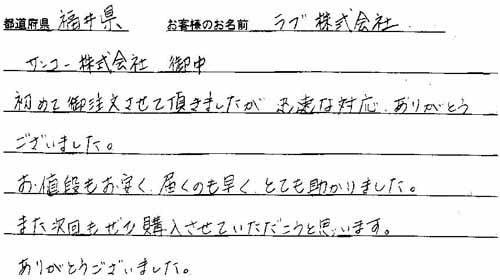 都道府県 福井県 お客様のお名前 ラブ株式会社
サンコー株式会社 御中
初めて御注文させて頂きましたが 迅速な対応、ありがとう
ございました。
お値段もお安く、届くのも早く、とても助かりました。
また次回もぜひ購入させていただこうと思います。
ありがとうございました。